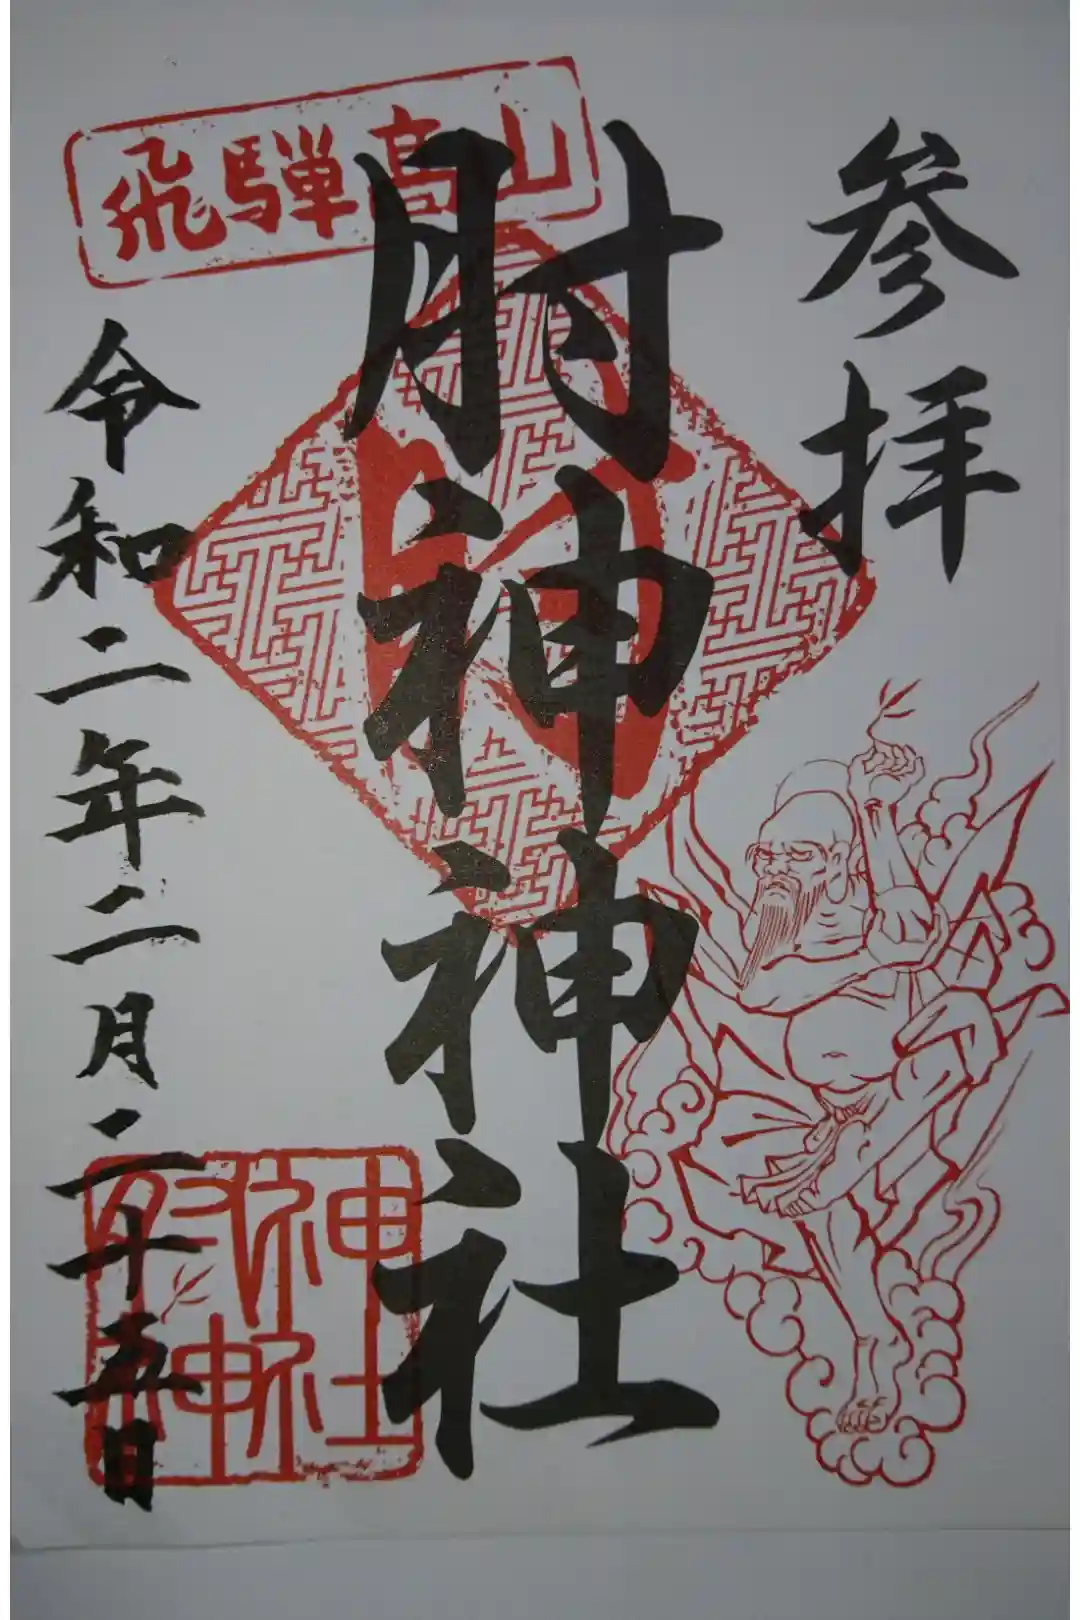 参拝
肘神神社
飛騨高山
令和二年二月二十五日
肘神
神社